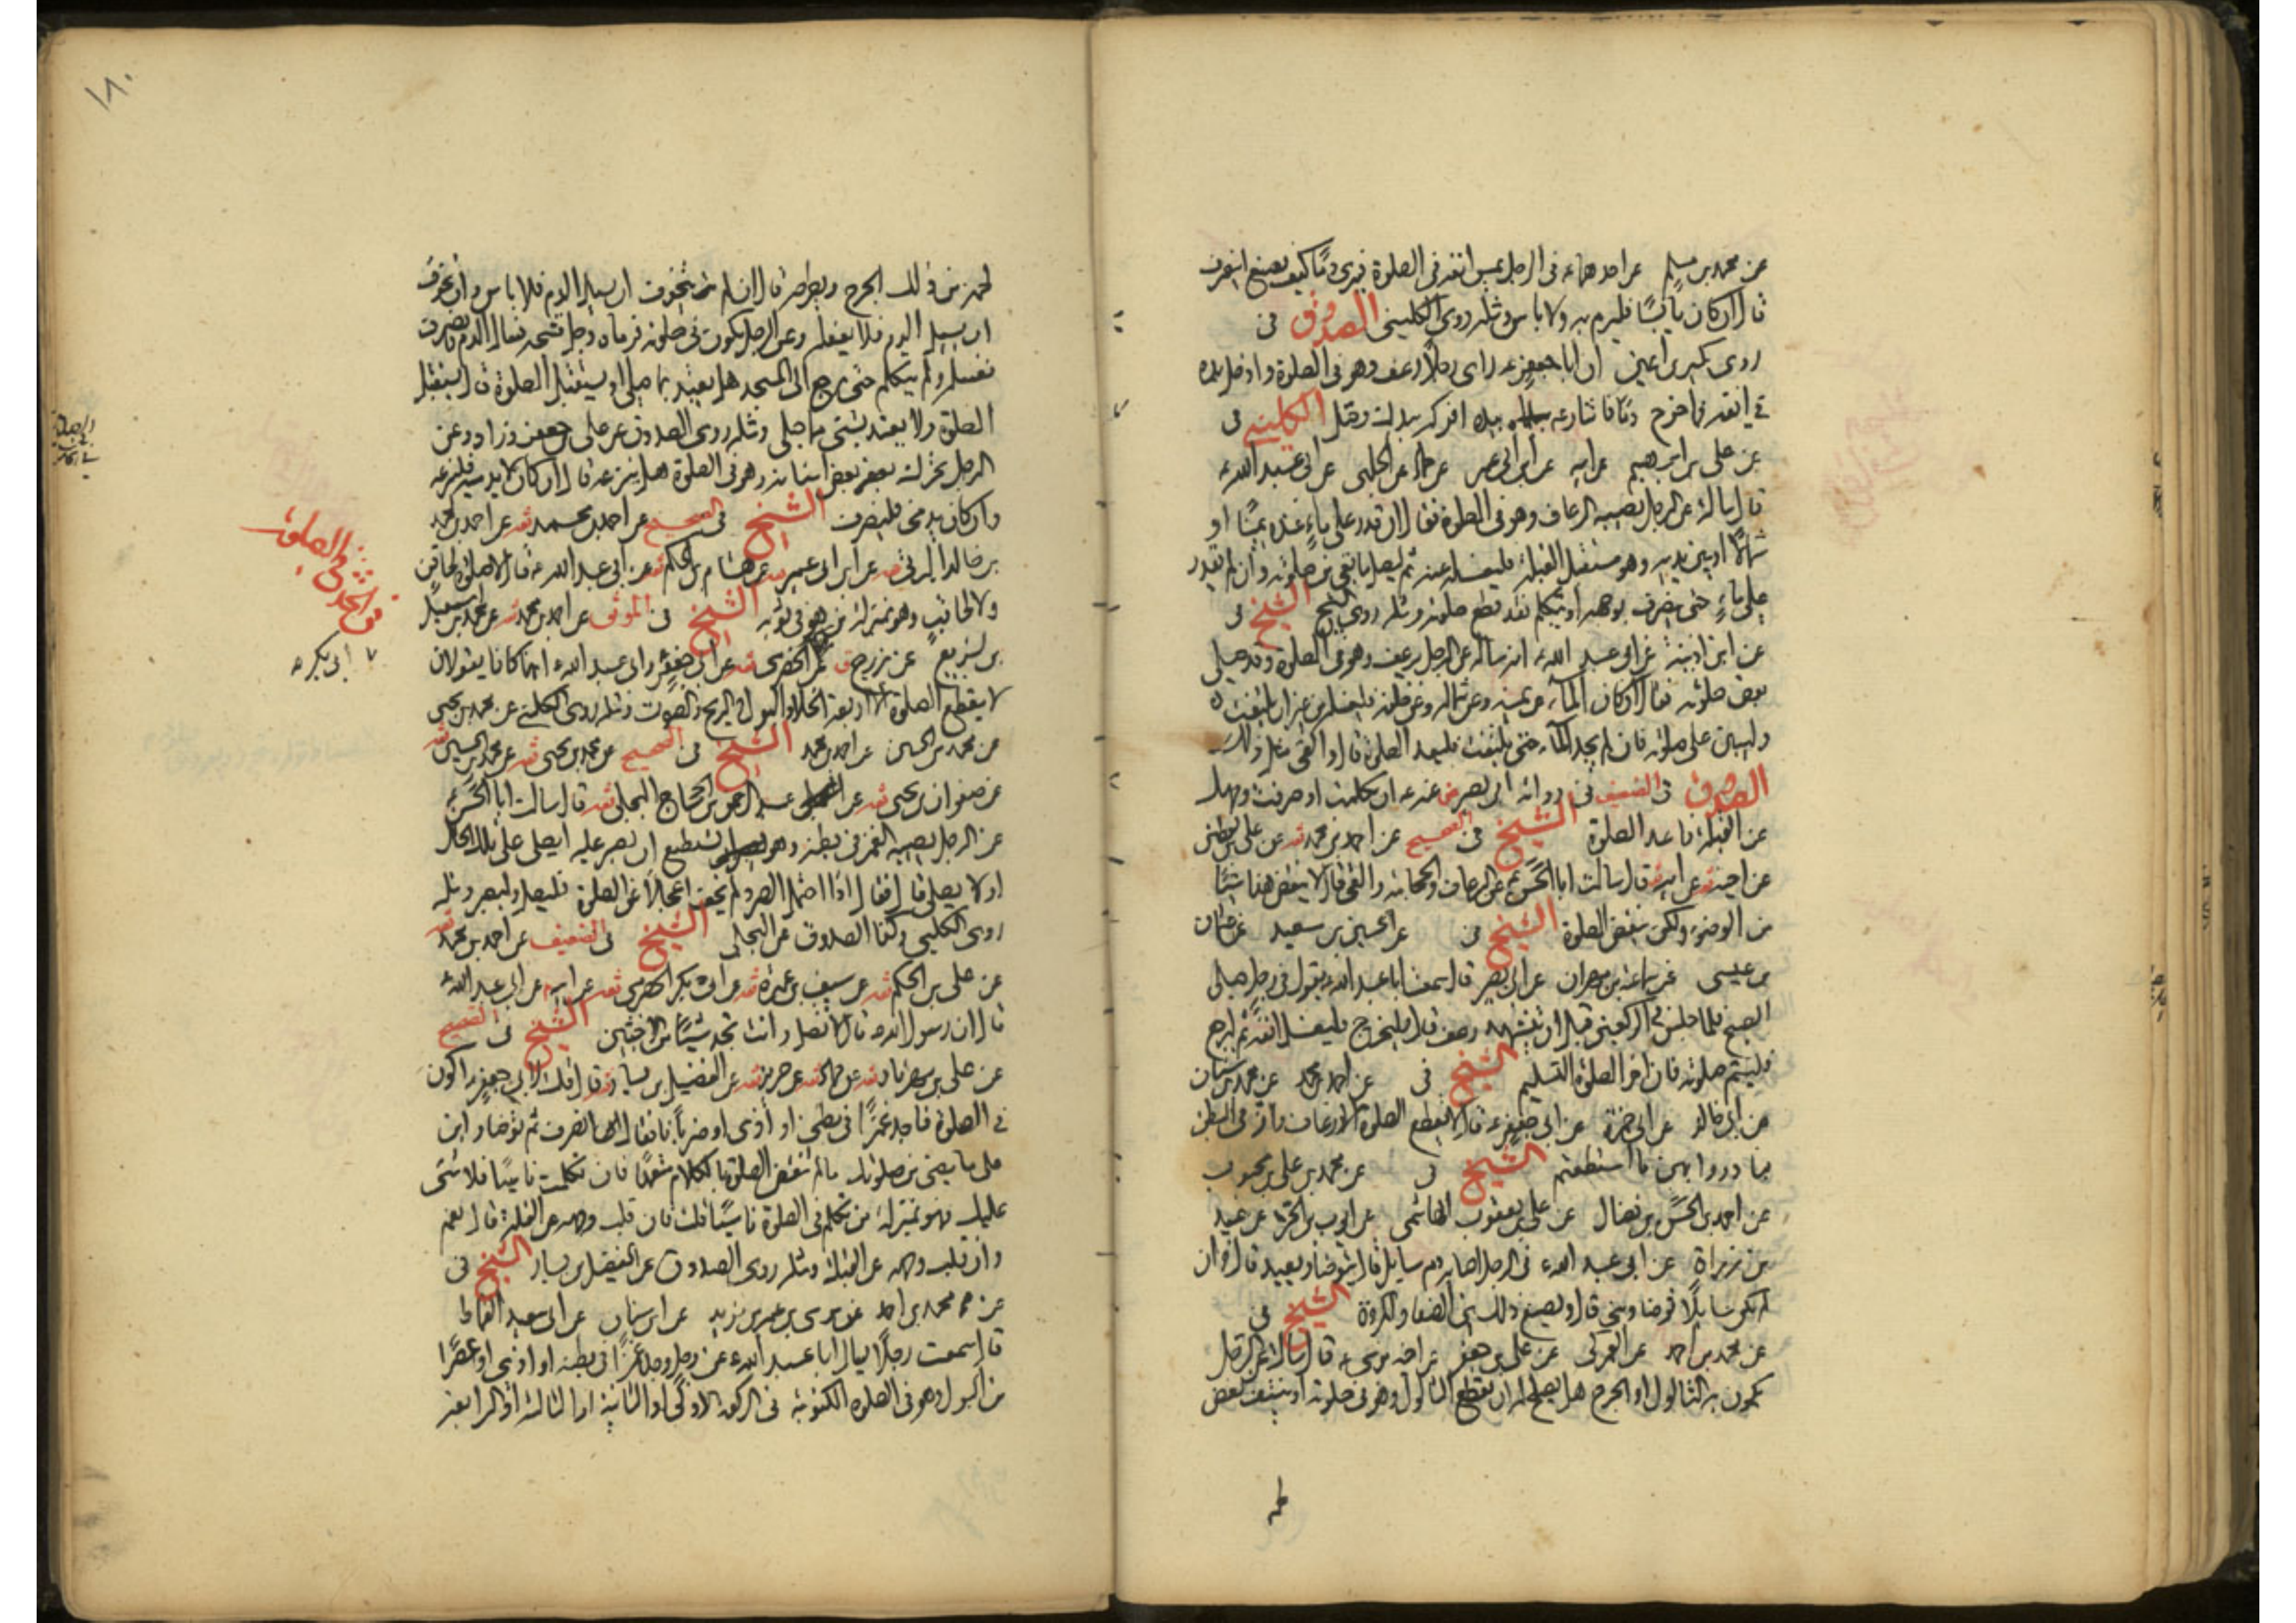 عن محمد بن مسلم عن احدهما ع فى الرجل يمس انفه فى الصلوة فيرى دما كيف يصنع اينصرف
قال ان كان يابسا فليرم به ولا باس ومثله روى الكلينى الصدوق فى
روى بكير بن اعين ان ابا جعفر ع راى رجلا رعف وهو فى الصلوة وادخل يده
فى انفه فاخرج دما فاشار ع بيده افركه بيدك وصل الكلينى فى
عن على بن ابرهيم عن ابيه عن ابن ابى عمير عن حماد عن الحلبى عن ابى عبد الله ع
قال سالته عن الرجل يصيبه الرعاف وهو فى الصلوة فقال ان قدر على ماء عنده يمينا او
شمالا او بين يديه وهو مستقبل القبلة فليغسله عنه ثم ليصل ما بقى من صلوته وان لم يقدر
على ماء حتى ينصرف بوجهه او يتكلم فقد قطع صلوته ومثله روى الشيخ الشيخ فى
عن ابن اذينة عن ابى عبد الله ع انه ساله عن الرجل يرعف وهو فى الصلوة وقد صلى
بعض صلوته فقال ان كان الماء عن يمينه وعن شماله وعن خلفه فليغسله من غير ان يلتفت
وليبن على صلوته فان لم يجد الماء حتى يلتفت فليعد الصلوة قال والقى مثل ذلك
الصدوق فى الضعيف فى رواية ابى بصير عنه ع ان تكلمت او صرفت وجهك
عن القبلة فاعد الصلوة الشيخ فى الصحيح عن احمد بن محمد ثقه عن على بن يقطين
عن اخيه عن ابيه قال سالت ابا الحسن ع عن الرعاف والحجامة والقى قال لا ينقض هذا شيئا
من الوضوء ولكن ينقض الصلوة الشيخ فى عن الحسين بن سعيد عن عثمان
بن عيسى عن سماعة بن مهران عن ابى بصير قال سمعت ابا عبد الله ع يقول فى رجل صلى
الصبح فلما جلس فى الركعتين قبل ان يتشهد رعف قال فليخرج فليغسل انفه ثم ليرجع
فليتم صلوته فان اخر الصلوة التسليم الشيخ فى عن احمد بن محمد عن محمد بن سنان
عن ابى خالد عن ابى حمزة عن ابى جعفر ع قال لا يقطع الصلوة الا رعاف واز فى البطن
فبادروا بهن ما استطعتم الشيخ فى عن محمد بن على بن محبوب
عن احمد بن الحسن بن فضال عن على بن يعقوب الهاشمى عن ايوب بن الحر عن عبيد
بن زرارة عن ابى عبد الله ع فى الرجل اصابه دم سايل قال يتوضا ويعيد قال وان
لم يكن سايلا توضا وبنى قال ويصنع ذلك بين الصفا والمروة الشيخ فى
عن محمد بن احمد عن العمركى عن على بن جعفر عن اخيه موسى ع قال سالته عن الرجل
يكون به الثالول او الجرح هل يصلح له ان يقطع الثالول وهو فى صلوته او ينتف بعض
لحمه من ذلك الجرح ويطرحه قال ان لم يتخوف ان يسيل الدم فلا باس وان تخوف
ان يسيل الدم فلا يفعله وعن الرجل يكون فى صلوته فرماه رجل فشجه فسال الدم فانصرف
فغسله ولم يتكلم حتى رجع الى المسجد هل يعتد بما صلى او يستقبل الصلوة قال يستقبل
الصلوة ولا يعتد بشئ مما صلى ومثله روى الصدوق عن على بن جعفر وزاد وعن
الرجل يتحرك بعض اسنانه وهو فى الصلوة هل ينزعه قال ان كان لا يدميه فلينزعه
وان كان يدمى فلينصرف الشيخ فى الصحيح عن احمد بن محمد ثقه عن احمد بن محمد
بن خالد البرقى ثقه عن ابن ابى عمير ثقه عن هشام بن الحكم ثقه عن ابى عبد الله ع قال لا صلوة لحاقن
ولا لحاقب وهو بمنزلة من هو فى ثوبه الشيخ فى الموثق عن احمد بن محمد ثقه عن محمد بن اسمعيل
بن بزيع عن بزرج ق عن الحضرمى ثقه عن ابى جعفر وابى عبد الله ع انهما كانا يقولان
لا يقطع الصلوة الا اربعة الخلا والبول والريح والصوت ومثله روى الكلينى عن محمد بن يحيى
عن محمد بن الحسين عن احمد بن محمد الشيخ فى الصحيح عن محمد بن يحيى ثقه عن محمد بن الحسين ثقه
عن صفوان بن يحيى ثقه عن عبد الرحمن بن الحجاج البجلى ثقه قال سالت ابا الحسن ع
عن الرجل يصيبه الغمز فى بطنه وهو يستطيع ان يصبر عليه ايصلى على تلك الحال
او لا يصلى قال فقال اذا احتمل الصبر ولم يخف اعجالا عن الصلوة فليصل وليصبر ومثله
روى الكلينى وكذا الصدوق عن البجلى الشيخ فى الضعيف عن احمد بن محمد ثقه
عن على بن الحكم ثقه عن سيف بن عميرة ثقه عن ابى بكر الحضرمى ثقه عن ابيه عن ابى عبد الله ع
قال ان رسول الله ص قال لا تصل وانت تجد شيئا من الاخبثين الشيخ فى الصحيح
عن على بن مهزيار ثقه عن حماد ثقه عن حريز ثقه عن الفضيل بن يسار ثقه قال قلت لابى جعفر ع اكون
فى الصلوة فاجد غمزا فى بطنى او اذى او ضربانا فقال انصرف ثم توضا وابن
على ما مضى من صلوتك ما لم تنقض الصلوة بالكلام متعمدا فان تكلمت ناسيا فلا شئ
عليك فهو بمنزلة من تكلم فى الصلوة ناسيا قلت فان قلب وجهه عن القبلة قال نعم
وان قلب وجهه عن القبلة ومثله روى الصدوق عن الفضيل بن يسار الشيخ فى
عن محمد بن احمد عن موسى بن عمر بن يزيد عن ابن سنان عن ابى سعيد القماط
قال سمعت رجلا يسال ابا عبد الله ع عن رجل وجد غمزا فى بطنه او اذى او عصرا
من البول وهو فى الصلوة المكتوبة فى الركعة الاولى او الثانية او الثالثة او الرابعة
١٨٠
فى الحدث فى الصلوة
ابى بكر